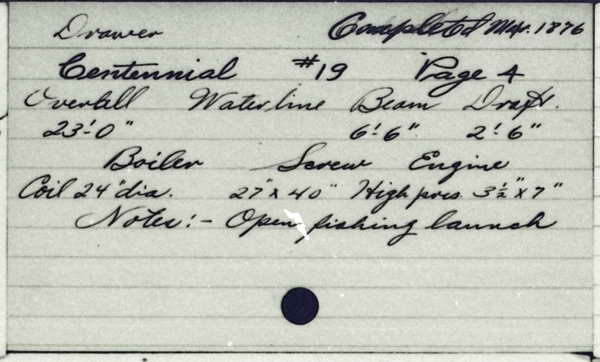 Drawer Completed Mar. 1876
Centennial #19 Page 4
Overall Waterline Beam Draft.
23'-0" 6'-6" 2'-6"
Boiler Screw Engine
Coil 24" dia. 27" x 40" High pres. 3½" x 7"
Notes:- Open fishing launch